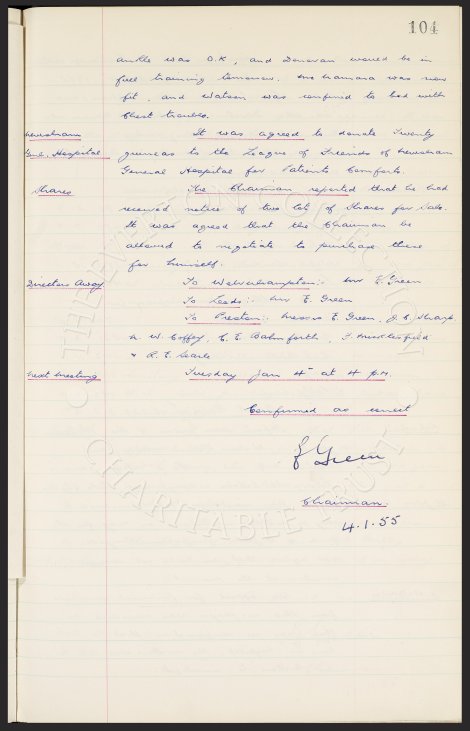 104
ankle was O.K, and Donovan would be in
full training tomorrow. McNamara was now
fit, and Watson was confined to bed with
Chest trouble.
Lewisham
Gen. Hospital
It was agreed to donate Twenty
guineas to the League of Friends of Lewisham
General Hospital for Patients Comforts.
Shares
The Chairman reported that he had
received notice of two lot of Shares for Sale.
It was agreed that the Chairman be
allowed to negotiate to purchase these
for himself.
Directors Away
To Wolverhampton:- Mr E. Green
To Leeds:- Mr E. Green
To Preston:- Messrs E. Green, J. E. Sharp,
W. Coffey, C. E. F.
& R. E. Searle
Next Meeting
Tuesday Jan 4th at 4 p.m.
Confirmed as correct
E Green
Chairman.
4.1.55
THREVELYAN COLLECTION
CHARITABLE TRUST